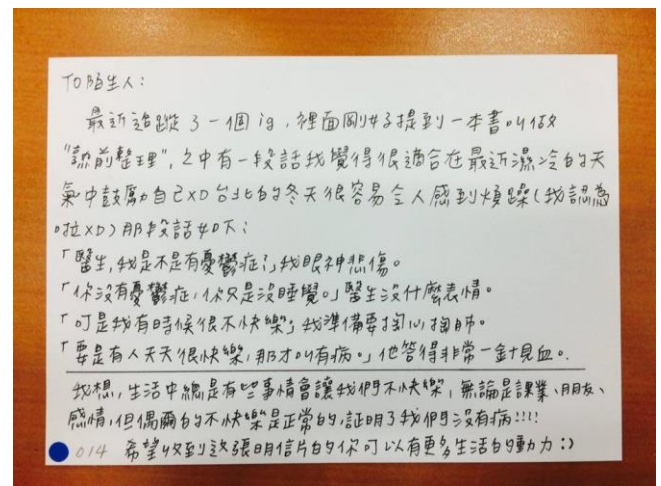 TO陌生人:
最近追蹤了一個ig,裡面剛好提到一本書叫做
"診前整理",之中有一段話我覺得很適合在最近濕冷的天
氣中鼓勵自己XD台北的冬天很容易令人感到煩躁(我認為
啦XD)那段話如下:
「醫生,我是不是有憂鬱症?」我眼神悲傷。
「你沒有憂鬱症,你只是沒睡覺。」醫生沒什麼表情。
「可是我有時候很不快樂」我準備要掏心掏肺。
「要是有人天天很快樂,那才叫有病。」他答得非常一針見血。
我想,生活中總是有些事情會讓我們不快樂,無論是課業、朋友、
感情,但偶爾的不快樂是正常的,証明了我們沒有病!!!!
014 希望收到這張明信片的你可以有更多生活的動力:)